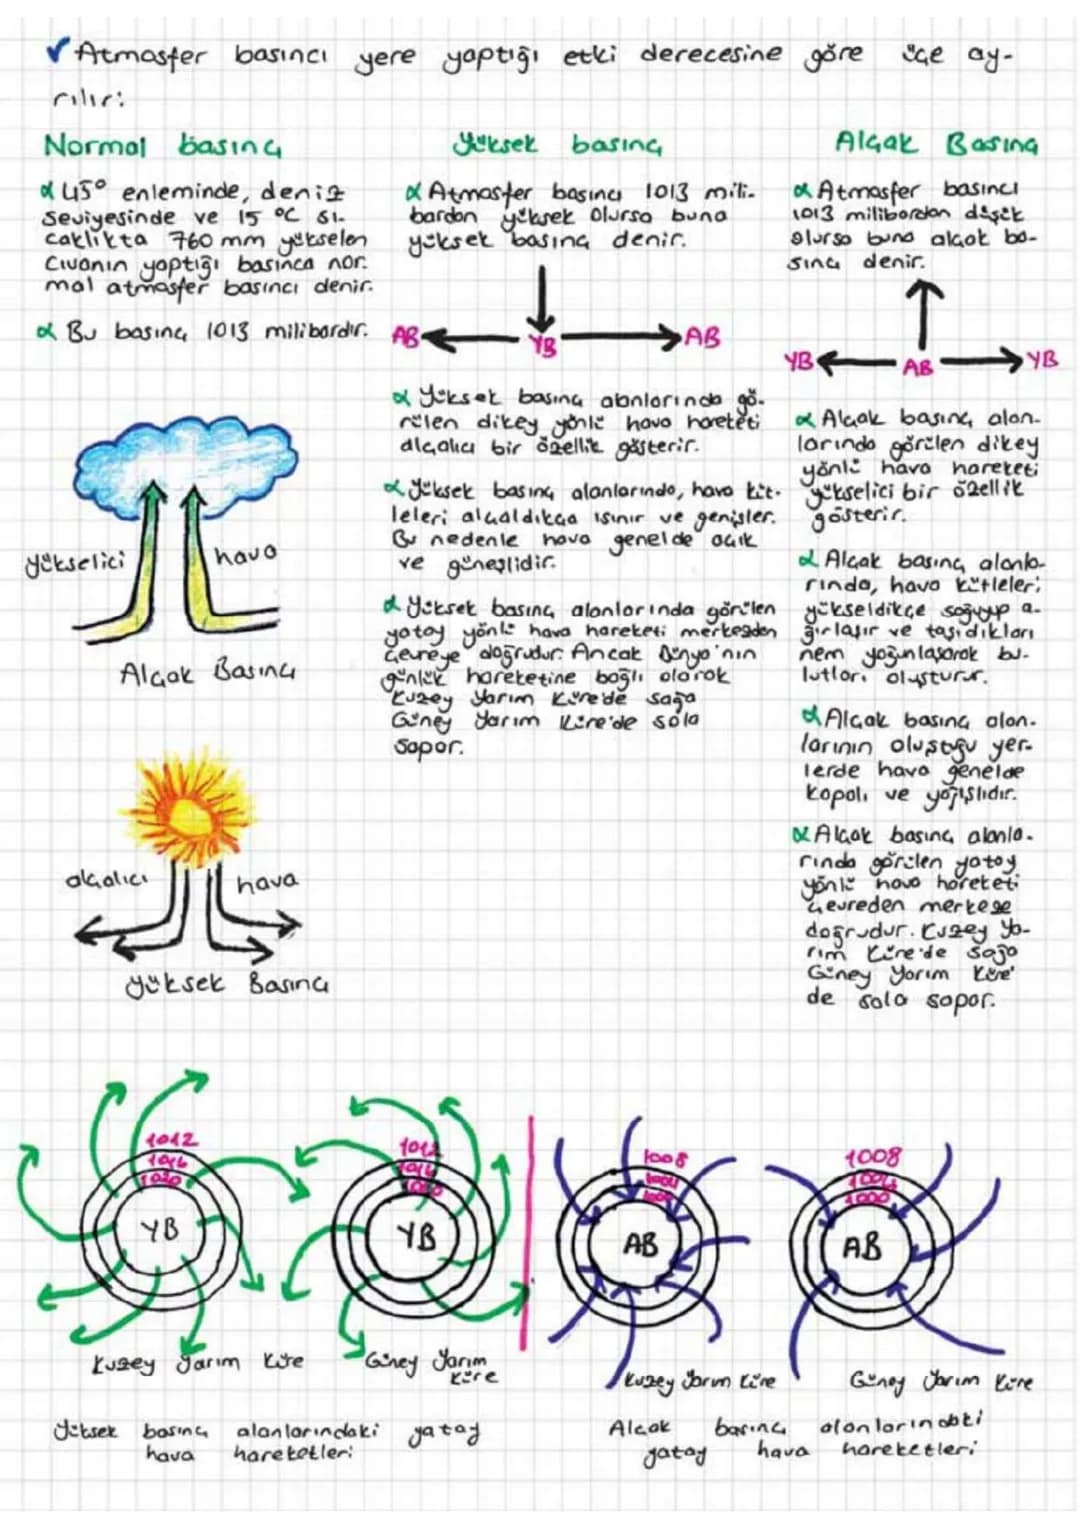 ✓ Atmosfer basıncı yere yaptığı etki derecesine göre üçe ay-
rılır:
Normal basınç
α 45° enleminde, deniz
seviyesinde ve 15 °C sı-
caklıkta 760 mm yükselen
cıvanın yaptığı basınca nor-
mal atmosfer basıncı denir.
α Bu basınç 1013 milibardır.
yükselici
hava
Alçak Basınç
alçalıcı
hava
Yüksek Basınç
Yüksek basınç
α Atmosfer basıncı 1013 mili-
bardan yüksek olursa buna
yüksek basınç denir.
AB
YB
AB
α Yüksek basınç alanlarında gö-
rülen dikey yönlü hava hareketi
alçalıcı bir özellik gösterir.
α Yüksek basınç alanlarında, hava küt-
leleri alçaldıkça ısınır ve genişler.
Bu nedenle hava genelde açık
ve güneşlidir.
α Yüksek basınç alanlarında görülen
yatay yönlü hava hareketi merkezden
çevreye doğrudur. Ancak Dünya'nın
günlük hareketine bağlı olarak
Kuzey Yarım Küre'de sağa
Güney Yarım Küre'de sola
sapar.
Alçak Basınç
α Atmosfer basıncı
1013 milibardan düşük
olursa buna alçak ba-
sınç denir.
YB
AB
YB
α Alçak basınç alan-
larında görülen dikey
yönlü hava hareketi
yükselici bir özellik
gösterir.
α Alçak basınç alanla-
rında, hava kütleleri
yükseldikçe soğuyup a-
ğırlaşır ve taşıdıkları
nem yoğunlaşarak bu-
lutları oluşturur.
α Alçak basınç alan-
larının oluştuğu yer-
lerde hava genelde
kapalı ve yağışlıdır.
α Alçak basınç alanla-
rında görülen yatay
yönlü hava hareketi
çevreden merkeze
doğrudur. Kuzey Ya-
rım Küre'de sağa
Güney Yarım Küre'
de sola sapar.
1012
1016
1020
YB
Kuzey Yarım Küre
1012
1016
1020
YB
Güney Yarım
Küre
Yüksek basınç alanlarındaki yatay
hava hareketleri
1008
1004
1000
AB
Kuzey Yarım Küre
1008
1004
1000
AB
Güney Yarım Küre
Alçak basınç alanlarındaki
yatay hava hareketleri